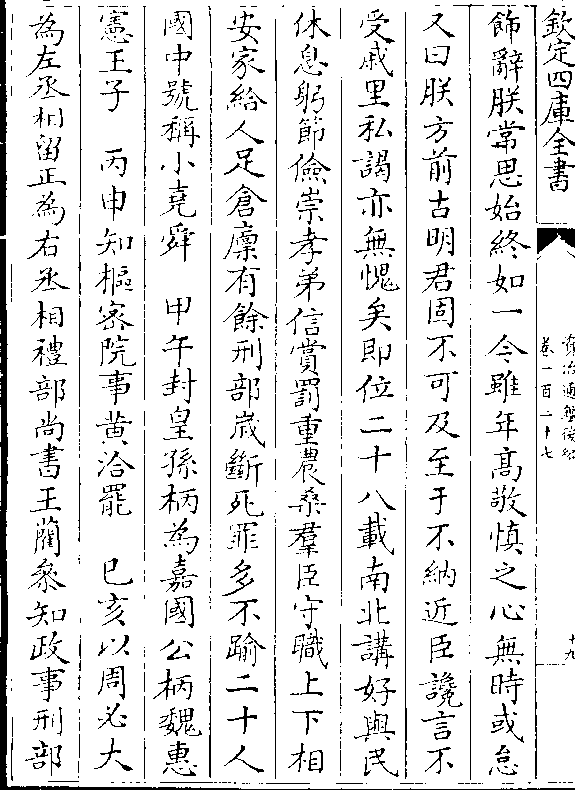 欽定四庫全書
資治通鑑後編
卷一百二十七
十九
飾辭朕常思始終如一今雖年髙敬慎之心無時或怠
又曰朕方前古明君固不可及至于不納近臣讒言不
受戚里私謁亦無愧矣即位二十八載南北講好與民
休息躬節儉崇孝弟信賞罰重農桑羣臣守職上下相
安家給人足倉廩有餘刑部嵗斷死罪多不踰二十人
國中號稱小堯舜　甲午封皇孫柄為嘉國公柄魏惠
憲王子　丙申知樞宻院事黄洽罷　己亥以周必大
為左丞相留正為右丞相禮部尚書王藺叅知政事刑部